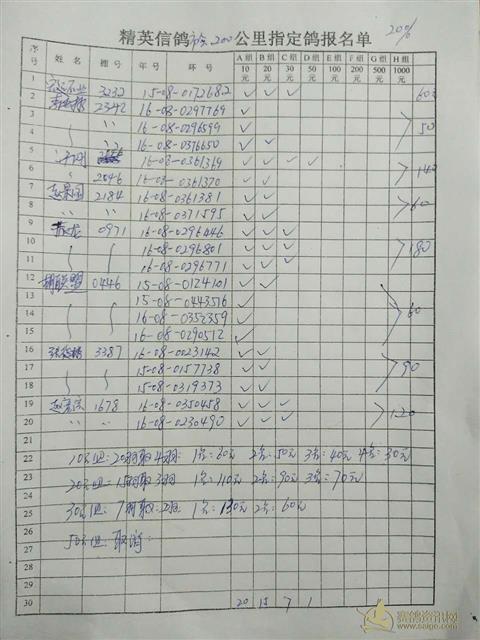 精英信鸽 200公里指定鸽报名单 20%
序号 姓名 棚号 年号 环号 A组10元 B组20元 C组30元 D组50元 E组100元 F组200元 G组500元 H组1000元
1 3232 15-08-0172682 ✓ ✓ ✓ 60元
2 2342 16-08-0297769 ✓
3 〃 16-08-0296599 ✓ 50
4 〃 16-08-0376650 ✓ ✓
5 16-08-0361369 ✓ ✓ ✓ ✓
6 〃 2046 16-08-0361370 ✓ ✓ 140
7 2184 16-08-0361381 ✓ ✓
8 〃 〃 16-08-0371595 ✓ ✓ 60
9 0971 16-08-0296446 ✓ ✓ ✓
10 16-08-0296801 ✓ ✓ ✓ 180
11 16-08-0296771 ✓ ✓ ✓
12 胡联盟 0446 15-08-0124101 ✓ ✓
13 15-08-0443576 ✓
14 16-08-0352359 ✓ 60
15 16-08-0290512 ✓
16 3387 16-08-0023142 ✓ ✓
17 15-08-0157738 ✓ ✓ 90
18 15-08-0319373 ✓ ✓
19 1678 16-08-0350458 ✓ ✓ ✓
20 〃 〃 16-08-0230490 ✓ ✓ ✓ 120
21
22 10元组:20羽取4羽: 1名:60元 2名:50元 3名:40元 4名:30元
23 20元组:15羽取3羽 1名:110元 2名:90元 3名:70元
24
25 30元组: 7羽取:2羽 1名:130元 2名:60元
26
27 50元组:取消
28
29
30 20 15 7 1
赛鸽资讯网
www.saige.com